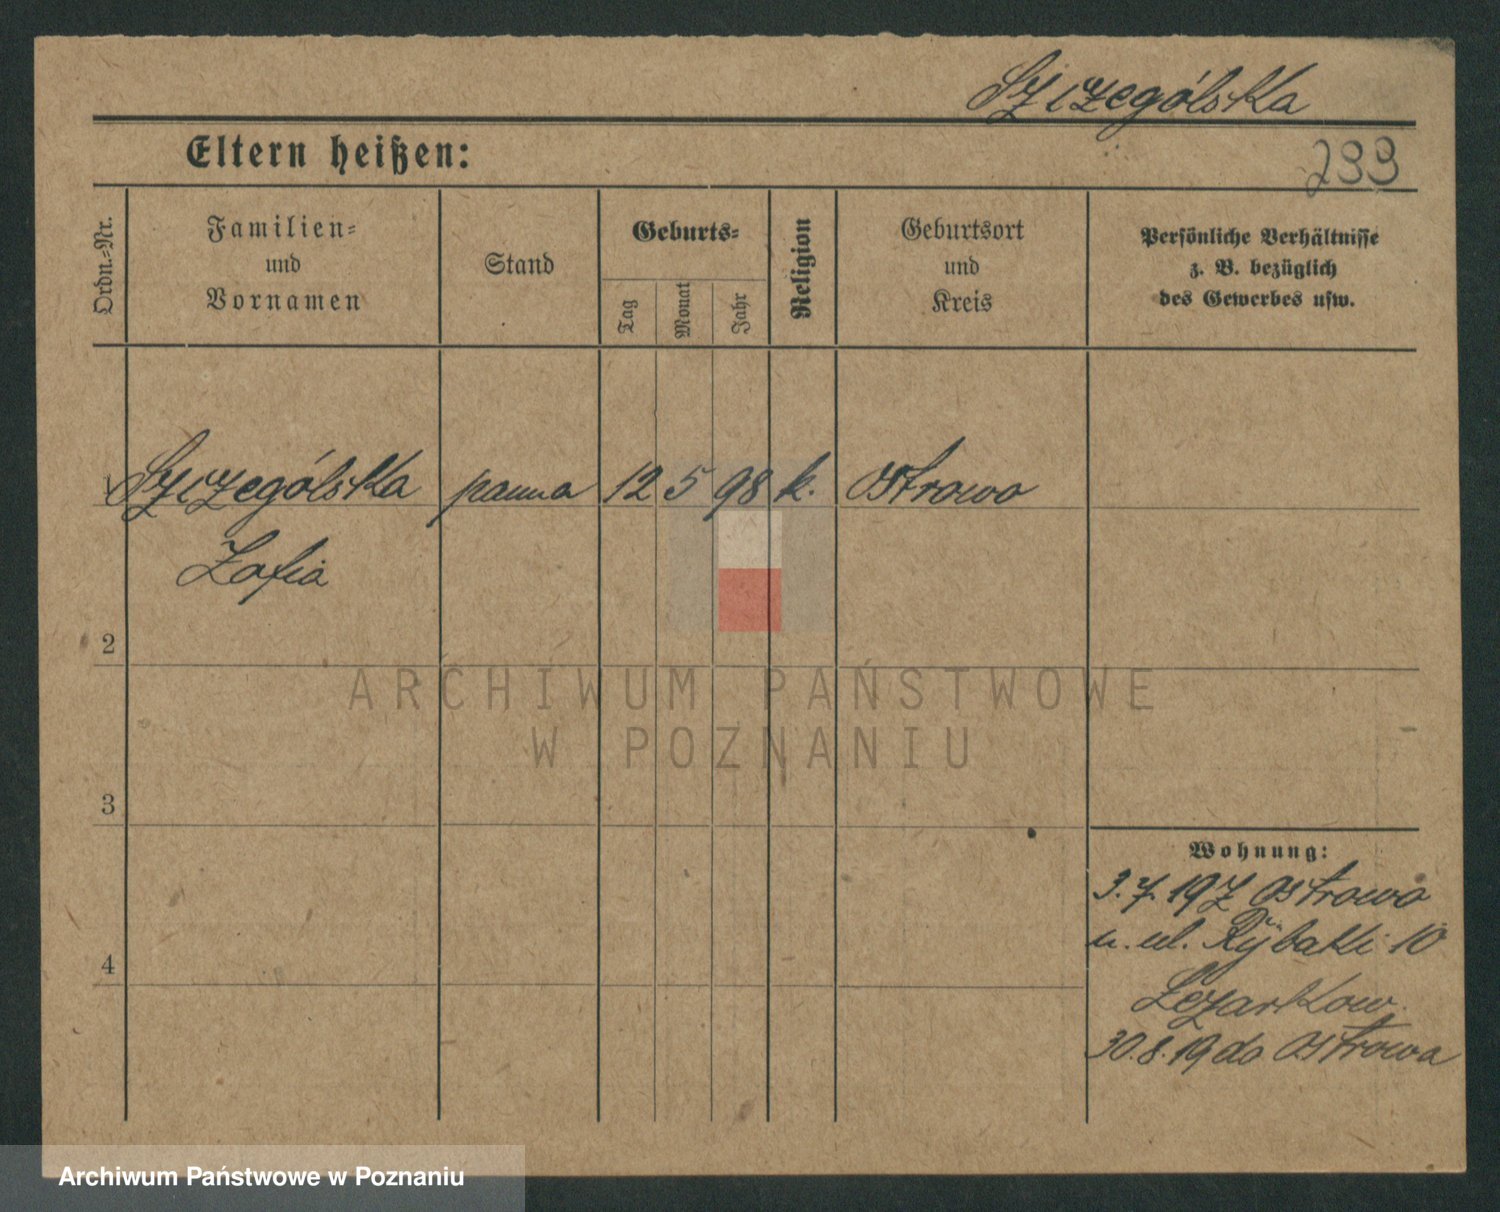 Szczególska
Eltern heißen:
299
Ordn.-Nr.
Familien-
und
Vornamen
Stand
Geburts-
Tag
Monat
Jahr
Religion
Geburtsort
und
Kreis
Persönliche Verhältnisse
z. B. bezüglich
des Gewerbes usw.
1 Szczególska panna 12 5 98 k. Ostrowo
Zofia
2
ARCHIWUM PAŃSTWOWE
W POZNANIU
3
Wohnung:
3.7.19 z Ostrowo
u. ul. Rybaki 10
4
30.8.19 do Ostrowa
Archiwum Państwowe w Poznaniu